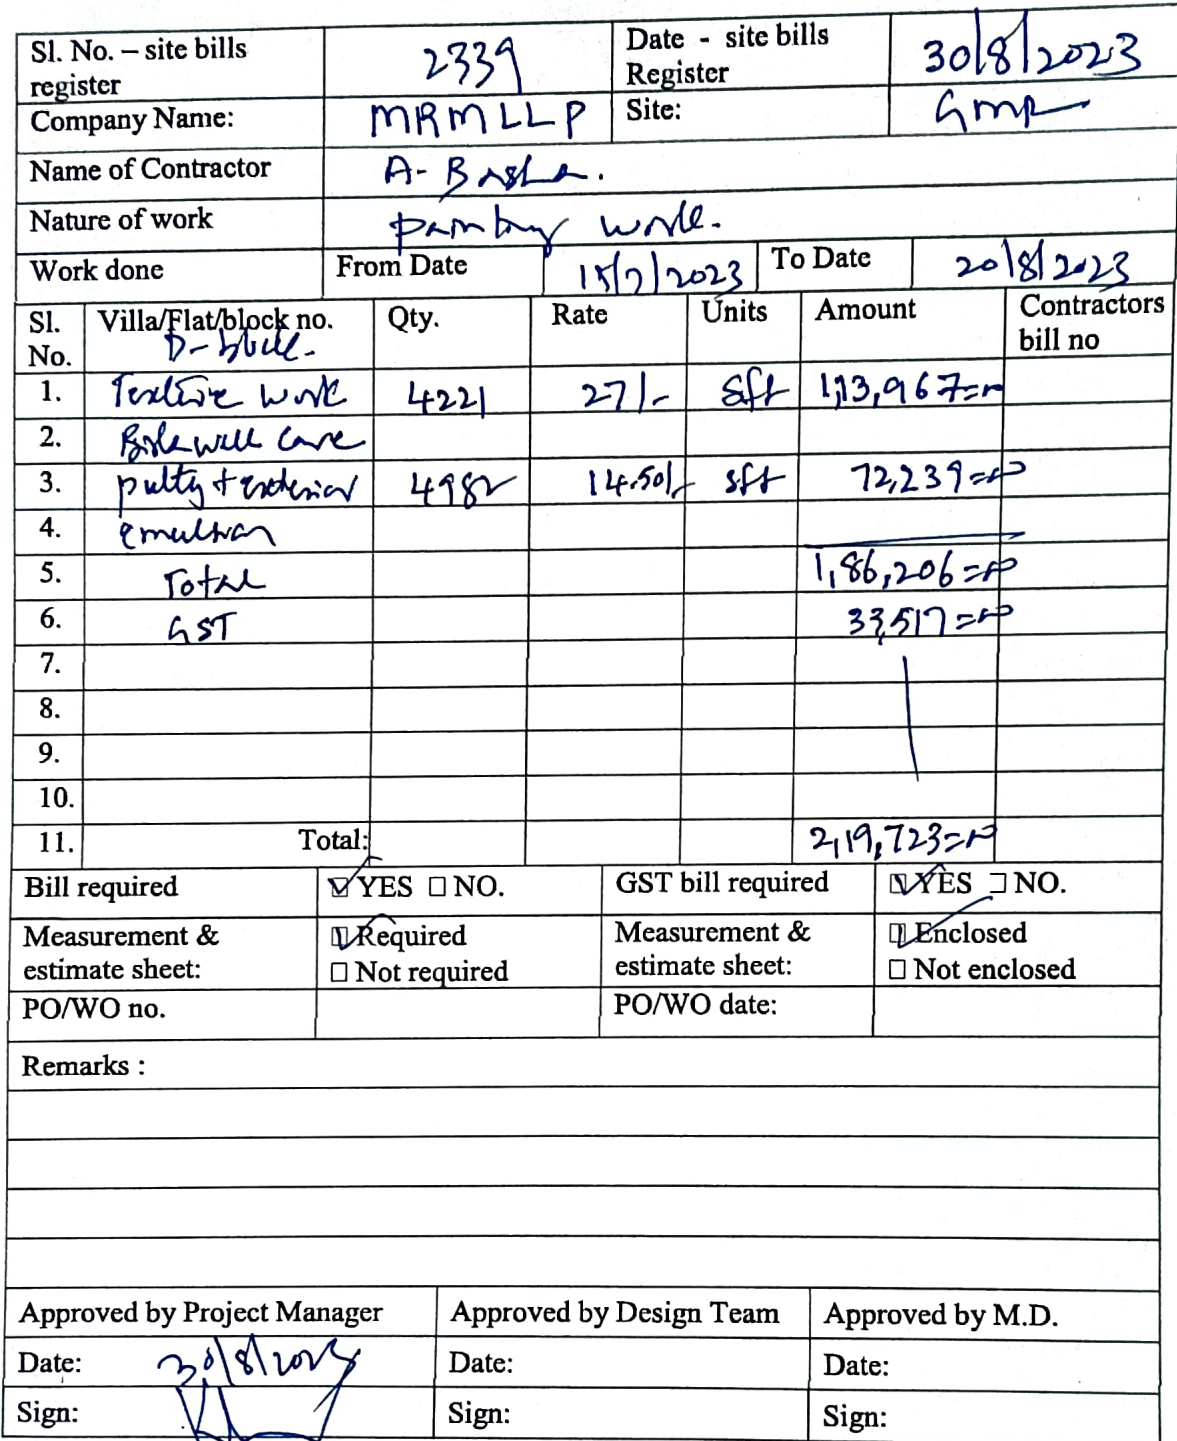 Sl. No. – site bills register 2339 Date - site bills Register 30/8/2023
Company Name: MRMLLP Site: GMR
Name of Contractor A- Basha.
Nature of work painting work.
Work done From Date 15/7/2023 To Date 20/8/2023
Sl. No. Villa/Flat/block no. Qty. Rate Units Amount Contractors bill no
D-block.
1. Texture work 4221 27/- sft 1,13,967=00
2. Birla wall care
3. putty + exterior 4982 14.50/- sft 72,239=00
4. emulsion
5. Total 1,86,206=00
6. GST 33,517=00
7.
8.
9.
10.
11. Total: 2,19,723=00
Bill required ☑ YES ☐ NO. GST bill required ☑ YES ☐ NO.
Measurement & estimate sheet: ☑ Required Measurement & estimate sheet: ☑ Enclosed
☐ Not required ☐ Not enclosed
PO/WO no. PO/WO date:
Remarks :
Approved by Project Manager Approved by Design Team Approved by M.D.
Date: 30/8/2023 Date: Date:
Sign: Sign: Sign: